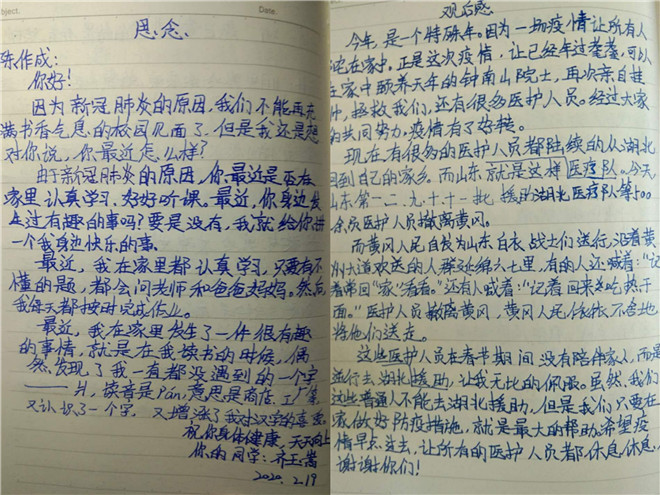 bject.
Date.
思念
陈作成:
你好!
因为新冠肺炎的原因,我们不能再充
满书香气息的校园见面了,但是我还是想
对你说,你最近怎么样?
由于新冠肺炎的原因,你最近是否在
家里认真学习,好好听课。最近,你身边发
生过有趣的事吗?要是没有,我就给你讲
一个我身边快乐的事。
最近,我在家里都认真学习,只要有不
懂的题,都会问老师和爸爸妈妈。然后,
我每天都按时完成作业。
最近,我在家里发生了一件很有趣
的事情,就是在我读书的时候,偶
然发现了我一直都没遇到的一个字
——爿,读音是pán,意思是商店、工厂等
又认识了一个字,又增涨了我对汉字的喜爱。
祝你身体健康,天天向上
你的同学:齐玉嵩
2020.2.19
观后感
今年,是一个特殊年。因为一场疫情让所有人
宅在家中。正是这次疫情,让已经年过耄耋,可以
在家中颐养天年的钟南山院士,再次亲自挂
帅,拯救我们,还有很多医护人员。经过大家
的共同努力,疫情有了好转。
现在,有很多的医护人员都陆续的从湖北
回到自己的家乡。而山东就是这样医疗队。今天,
山东第一、二、九、十、十一批援助湖北医疗队等500
余员医护人员撤离黄冈。
而黄冈人民自发为山东白衣战士们送行,沿着黄
州大道欢送的人群延绵六七里,有的人还喊着:“记
着常回“家”看看。”还有人喊着:“记着回来吃热干
面。”医护人员撤离黄冈,黄冈人民依依不舍地
将他们送走。
这些医护人员在春节期间没有陪伴家人,而是
逆行去湖北援助,让我无比的佩服。虽然,我们
这些普通人不能去湖北援助,但是我们只要在
家做好防疫措施,就是最大的帮助。希望疫
情早点过去,让所有的医护人员都休息休息。
谢谢你们!